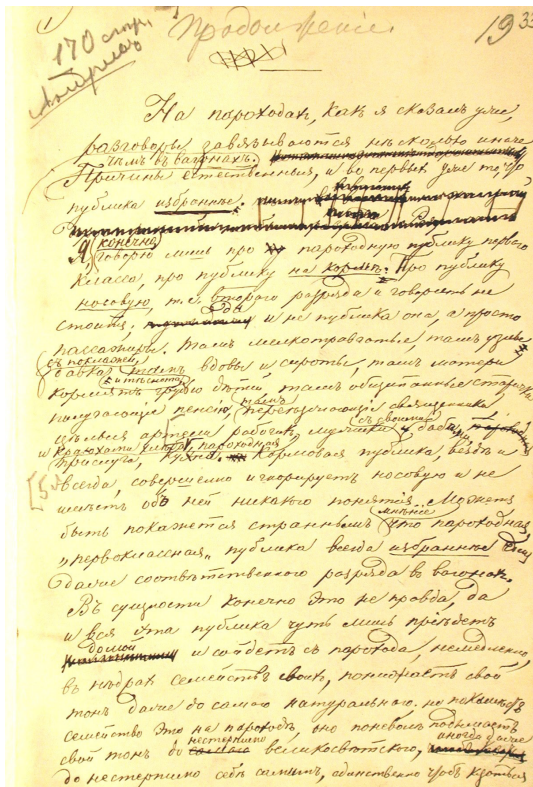 170 стр.
Продолженіе.
19
На пароходахъ, какъ я сказалъ уже,
разговоры завязываются нѣсколько иначе
чѣмъ въ вагонахъ.
Причины естественныя, и во первыхъ уже то, что
публика избраннѣе.
Я, конечно
говорю лишь про пароходную публику перваго
класса, про публику на кормѣ. Про публику
носовую, т. е. втораго разряда и говорить не
стоитъ. и не публика она, а просто
пассажиры. Тамъ мелкотравчатые, тамъ узлы
съ поклажей,
тамъ вдовы и сироты, тамъ матери
и тѣснота,
кормятъ грудью дѣтей, тамъ общипанные старички
тамъ
получающіе пенсію, перекочевывающіе священники
цѣлыя артели рабочихъ, мужики съ своими бабами
и пароходная
прислуга, кухня. Кормовая публика, вездѣ и
всегда, совершенно игнорируетъ носовую и не
имѣетъ объ ней никакого понятія. Можетъ
мнѣніе
быть покажется страннымъ что пароходная,
„первоклассная„ публика всегда избраннѣе
даже соотвѣтственнаго разряда въ вагонахъ.
Въ сущности конечно это не правда, да
и вся эта публика чуть лишь пріѣдетъ
домой
и сойдетъ съ парохода, немедленно,
въ нѣдрахъ семействъ своихъ, понижаетъ свой
тонъ даже до самаго натуральнаго. но покамѣстъ
семейство это на пароходѣ, оно поневолѣ подымаетъ
нестерпимо
свой тонъ до самаго великосвѣтскаго, иногда даже
до нестерпимо себѣ самимъ, единственно чтобъ казаться